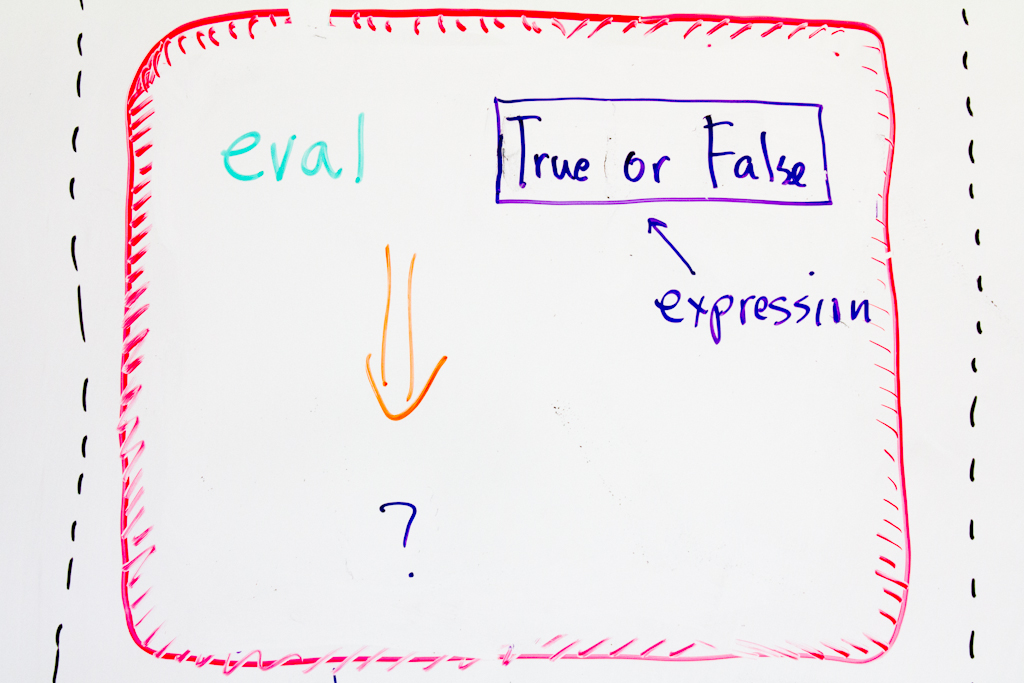 eval
True or False
expression
?